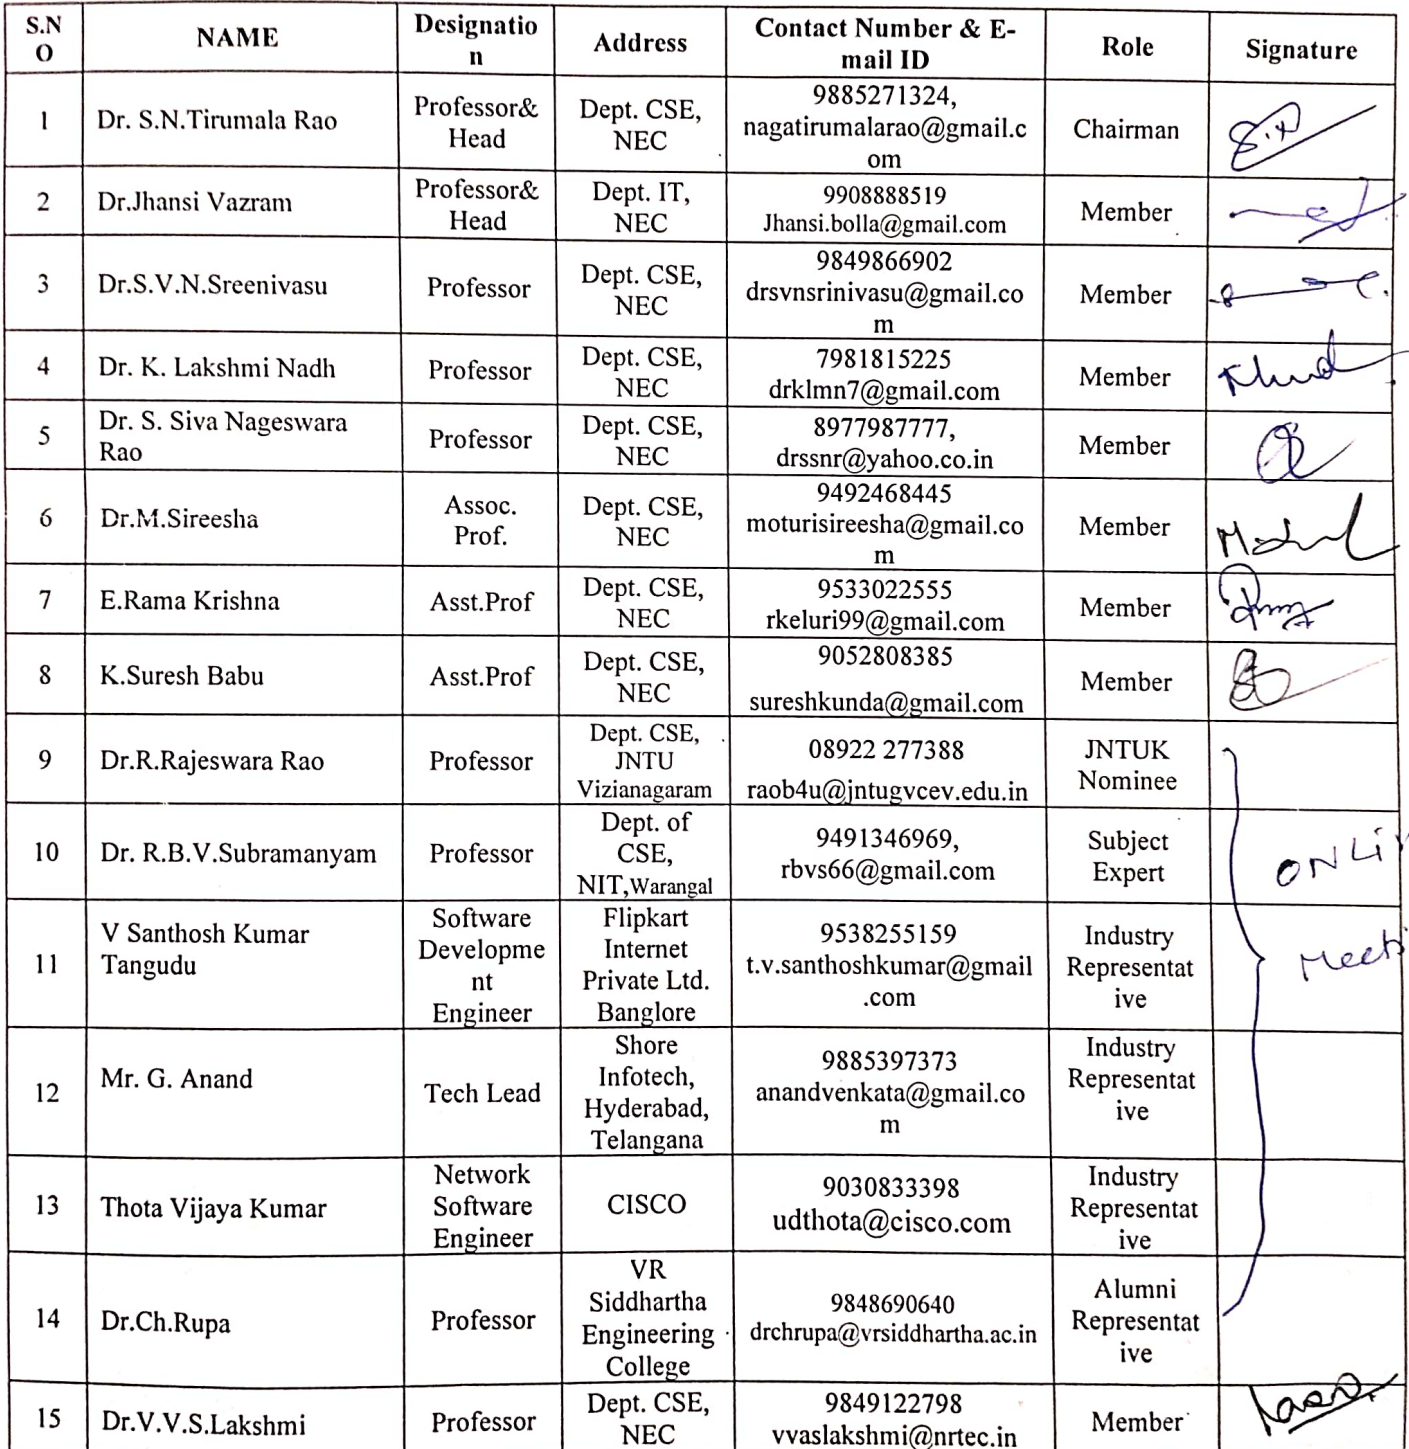 S.N
O
NAME
Designatio
n
Address
Contact Number & E-
mail ID
Role
Signature
1
Dr. S.N.Tirumala Rao
Professor&
Head
Dept. CSE,
NEC
9885271324,
nagatirumalarao@gmail.c
om
Chairman
2
Dr.Jhansi Vazram
Professor&
Head
Dept. IT,
NEC
9908888519
Jhansi.bolla@gmail.com
Member
3
Dr.S.V.N.Sreenivasu
Professor
Dept. CSE,
NEC
9849866902
drsvnsrinivasu@gmail.co
m
Member
4
Dr. K. Lakshmi Nadh
Professor
Dept. CSE,
NEC
7981815225
drklmn7@gmail.com
Member
5
Dr. S. Siva Nageswara
Rao
Professor
Dept. CSE,
NEC
8977987777,
drssnr@yahoo.co.in
Member
6
Dr.M.Sireesha
Assoc.
Prof.
Dept. CSE,
NEC
9492468445
moturisireesha@gmail.co
m
Member
7
E.Rama Krishna
Asst.Prof
Dept. CSE,
NEC
9533022555
rkeluri99@gmail.com
Member
8
K.Suresh Babu
Asst.Prof
Dept. CSE,
NEC
9052808385
sureshkunda@gmail.com
Member
9
Dr.R.Rajeswara Rao
Professor
Dept. CSE,
JNTU
Vizianagaram
08922 277388
raob4u@jntugvcev.edu.in
JNTUK
Nominee
10
Dr. R.B.V.Subramanyam
Professor
Dept. of
CSE,
NIT,Warangal
9491346969,
rbvs66@gmail.com
Subject
Expert
11
V Santhosh Kumar
Tangudu
Software
Developme
nt
Engineer
Flipkart
Internet
Private Ltd.
Banglore
9538255159
t.v.santhoshkumar@gmail
.com
Industry
Representat
ive
12
Mr. G. Anand
Tech Lead
Shore
Infotech,
Hyderabad,
Telangana
9885397373
anandvenkata@gmail.co
m
Industry
Representat
ive
13
Thota Vijaya Kumar
Network
Software
Engineer
CISCO
9030833398
udthota@cisco.com
Industry
Representat
ive
14
Dr.Ch.Rupa
Professor
VR
Siddhartha
Engineering
College
9848690640
drchrupa@vrsiddhartha.ac.in
Alumni
Representat
ive
15
Dr.V.V.S.Lakshmi
Professor
Dept. CSE,
NEC
9849122798
vvaslakshmi@nrtec.in
Member